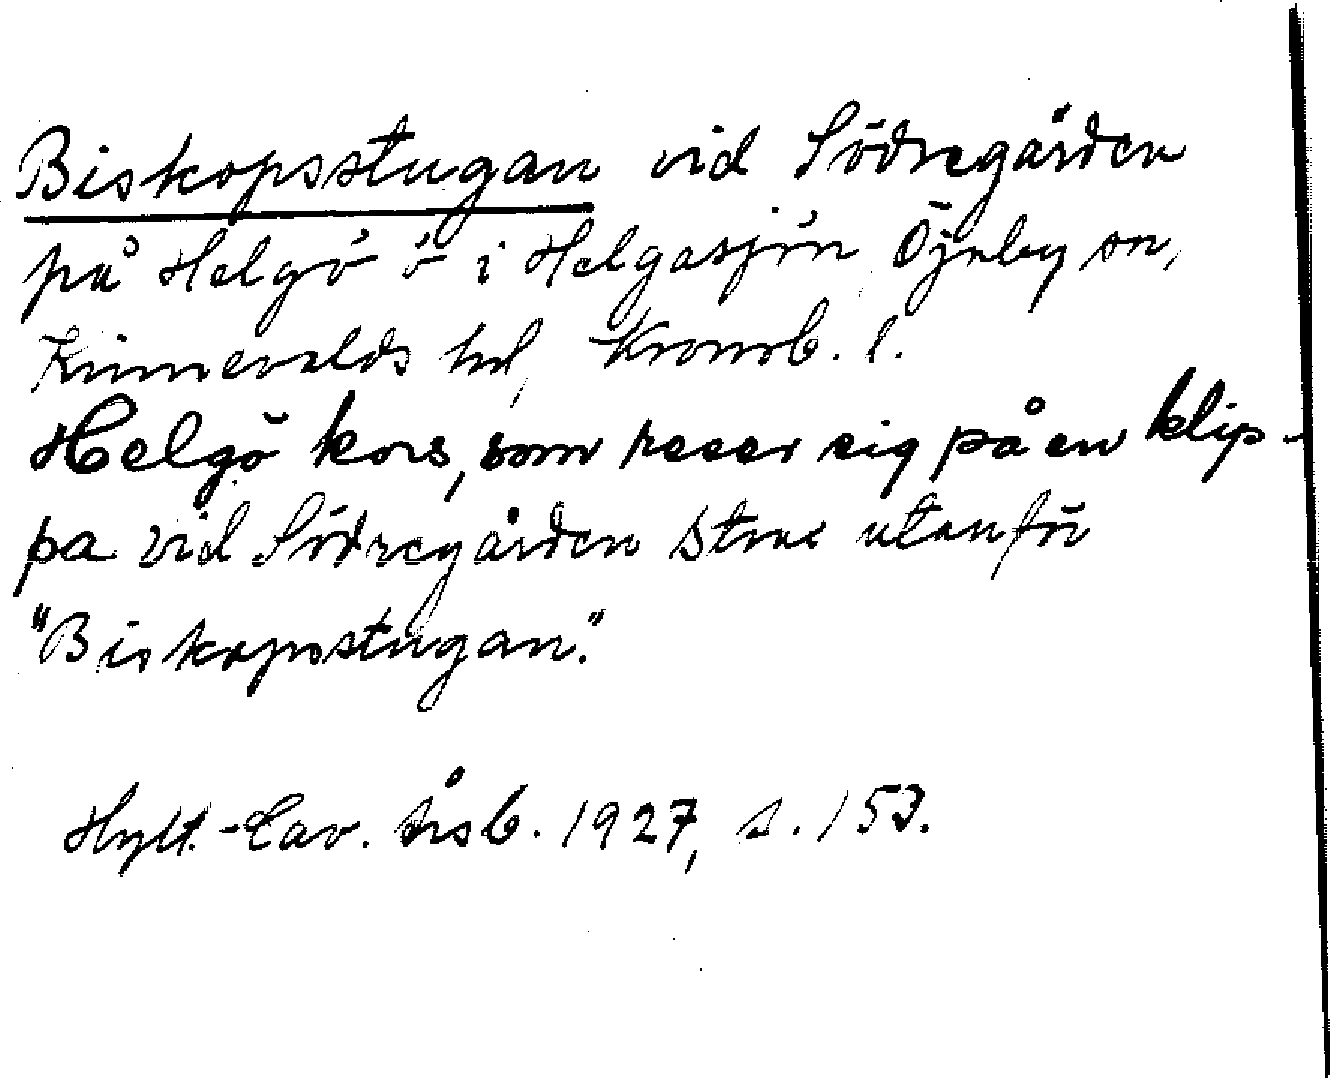 Biskopsstugan vid Södregården
på Helgö ö i Helgasjön Öjaby sn,
Kinnevalds hd, Kronob. l.
Helgö kors, som reser sig på en klip-
pa vid Södregården strax utanför
"Biskopsstugan."
Hylt.-Cav. årsb. 1927, s. 153.